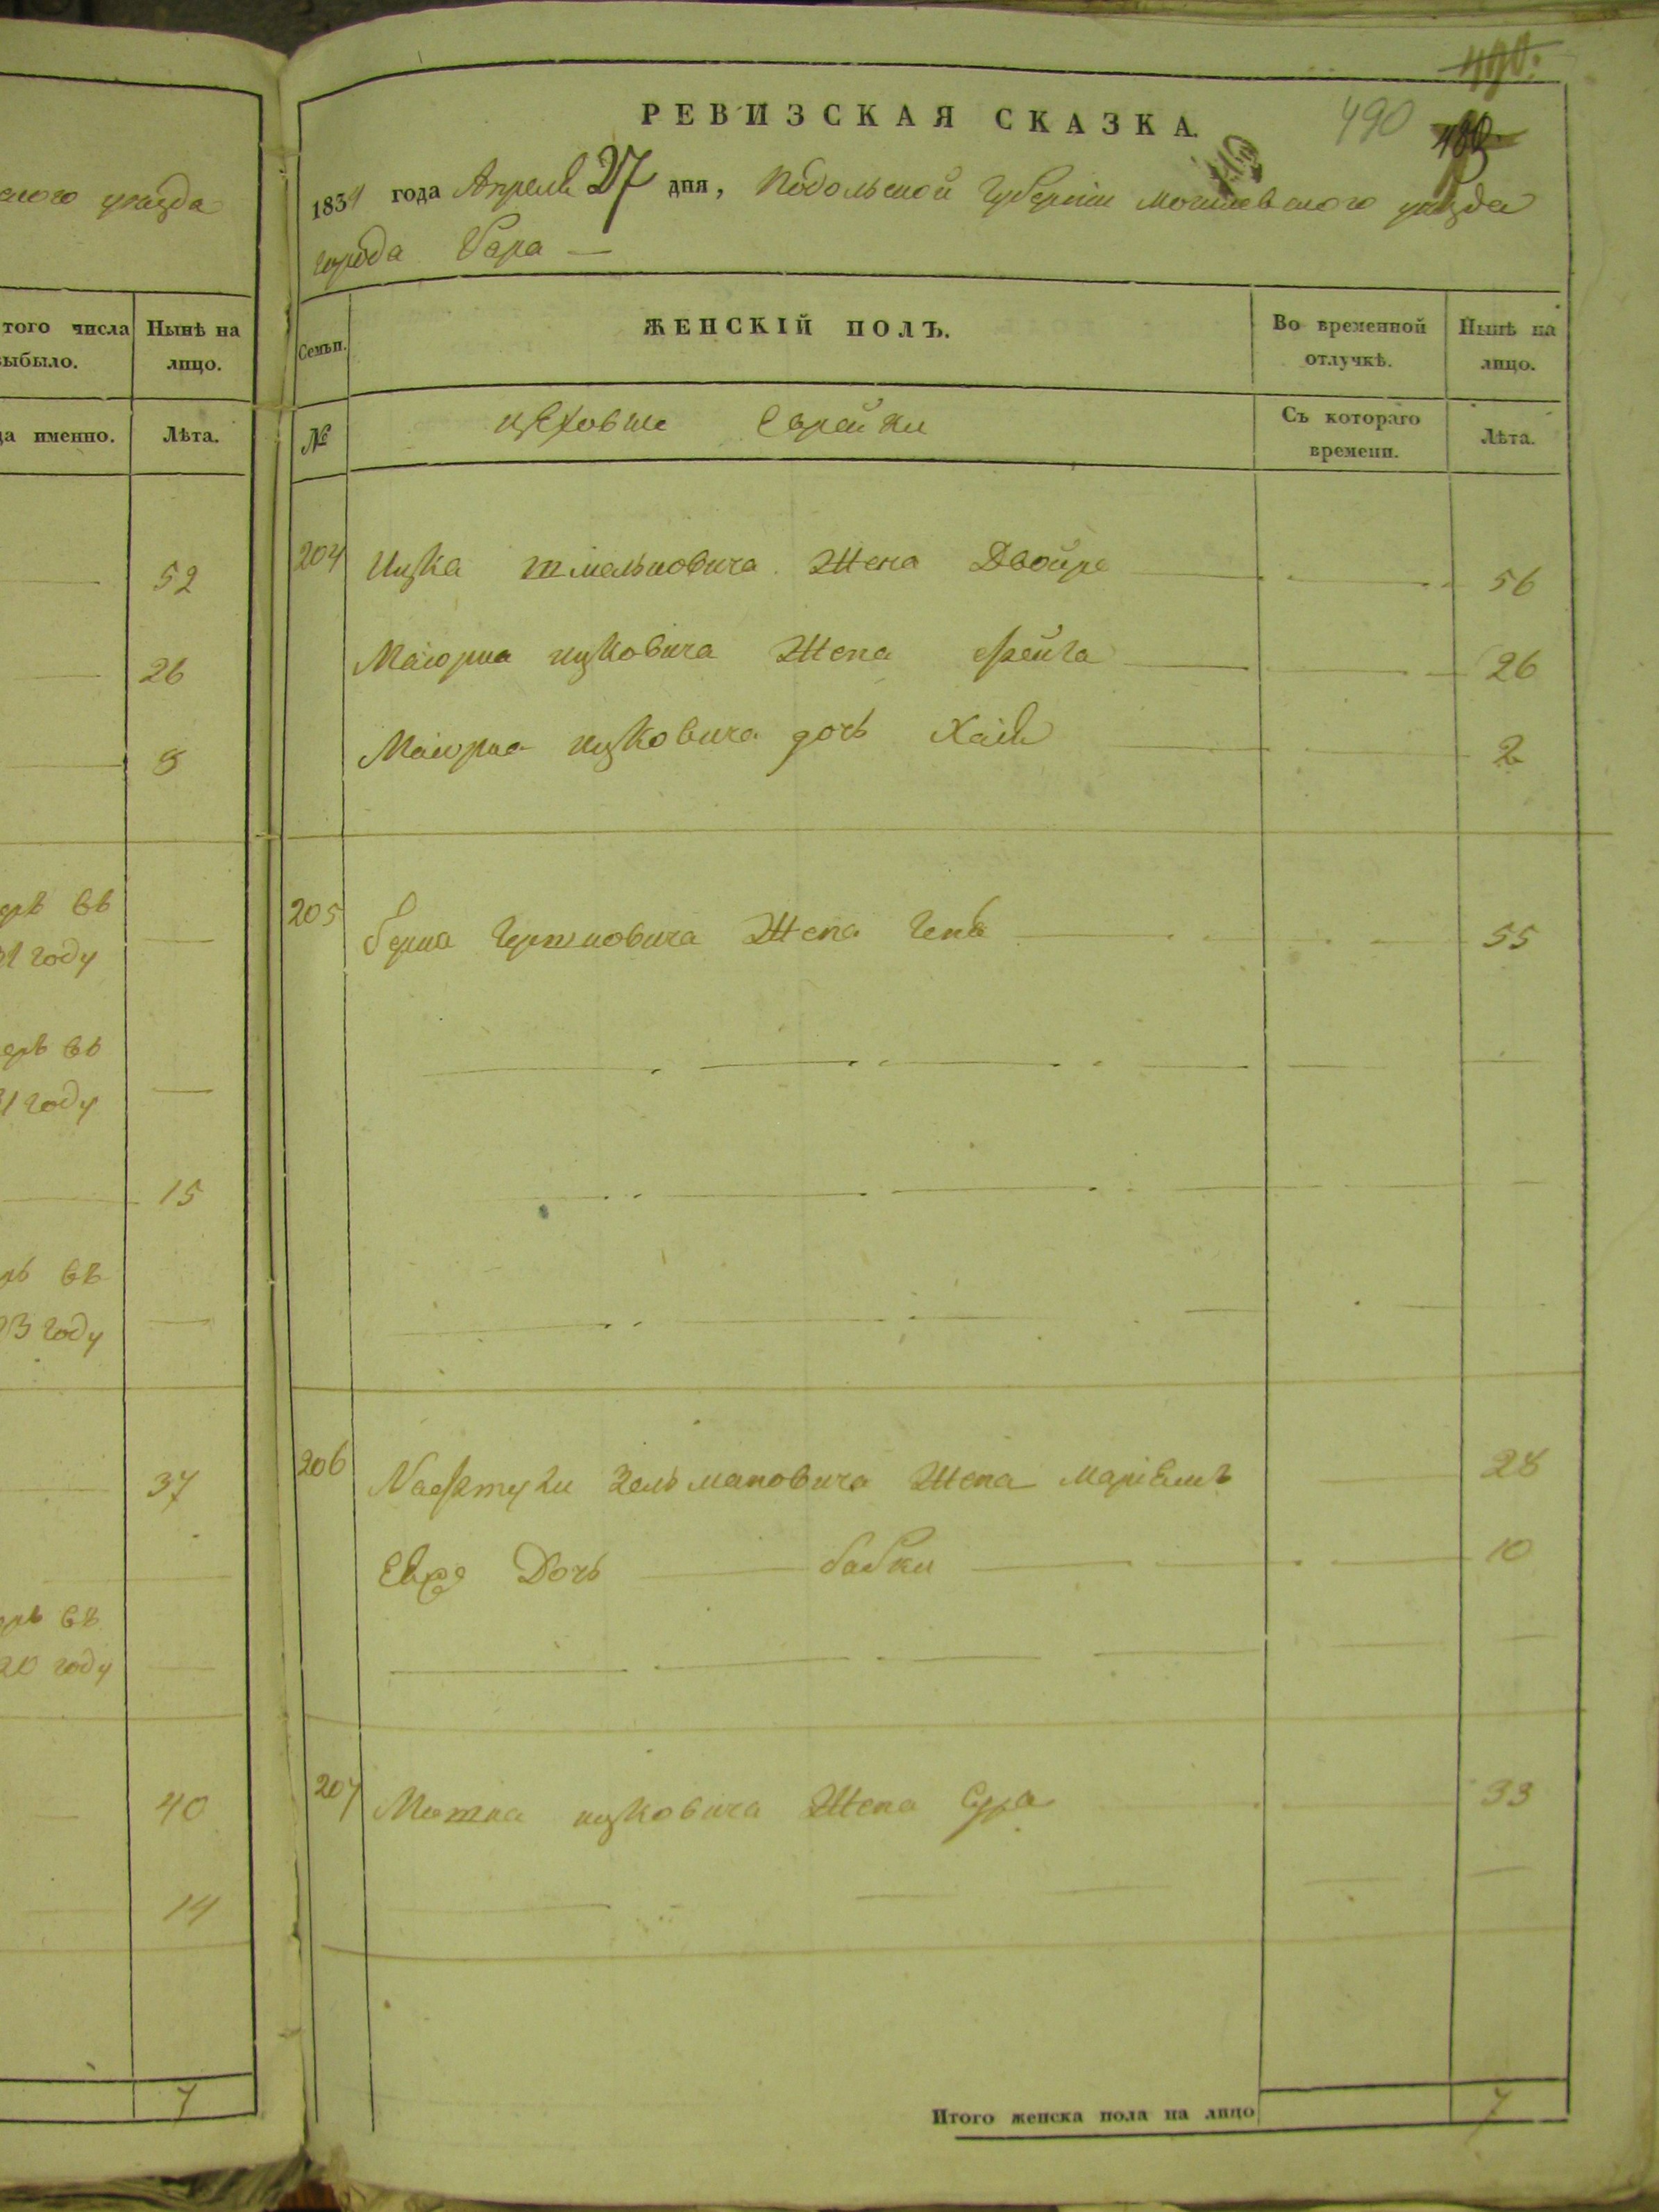 скаго уезда
того числа
выбыло.
Нынѣ на
лицо.
да именно.
Лѣта.
52
26
8
въ
31 году
въ
31 году
15
въ
23 году
37
въ
20 году
40
14
7
490
РЕВИЗСКАЯ СКАЗКА.
490
1834 года Апреля 27 дня, Подольской Губернии Могилевского уезда
города Бара
Семьи.
ЖЕНСКІЙ ПОЛЪ.
Во временной
отлучкѣ.
Нынѣ на
лицо.
№
цеховые Еврейки
Съ котораго
времени.
Лѣта.
204 Ицка Шмельковича Жена Двойре 56
Маіорка ицковича Жена Фейга 26
Маіорка ицковича дочь Хаія 2
205 Берка Гершковича Жена Геня 55
206 Нафтули Зельмановича Жена Маріемъ 28
Дочь бабки 10
207 Мошка ицковича Жена Сура 33
Итого женска пола на лицо 7